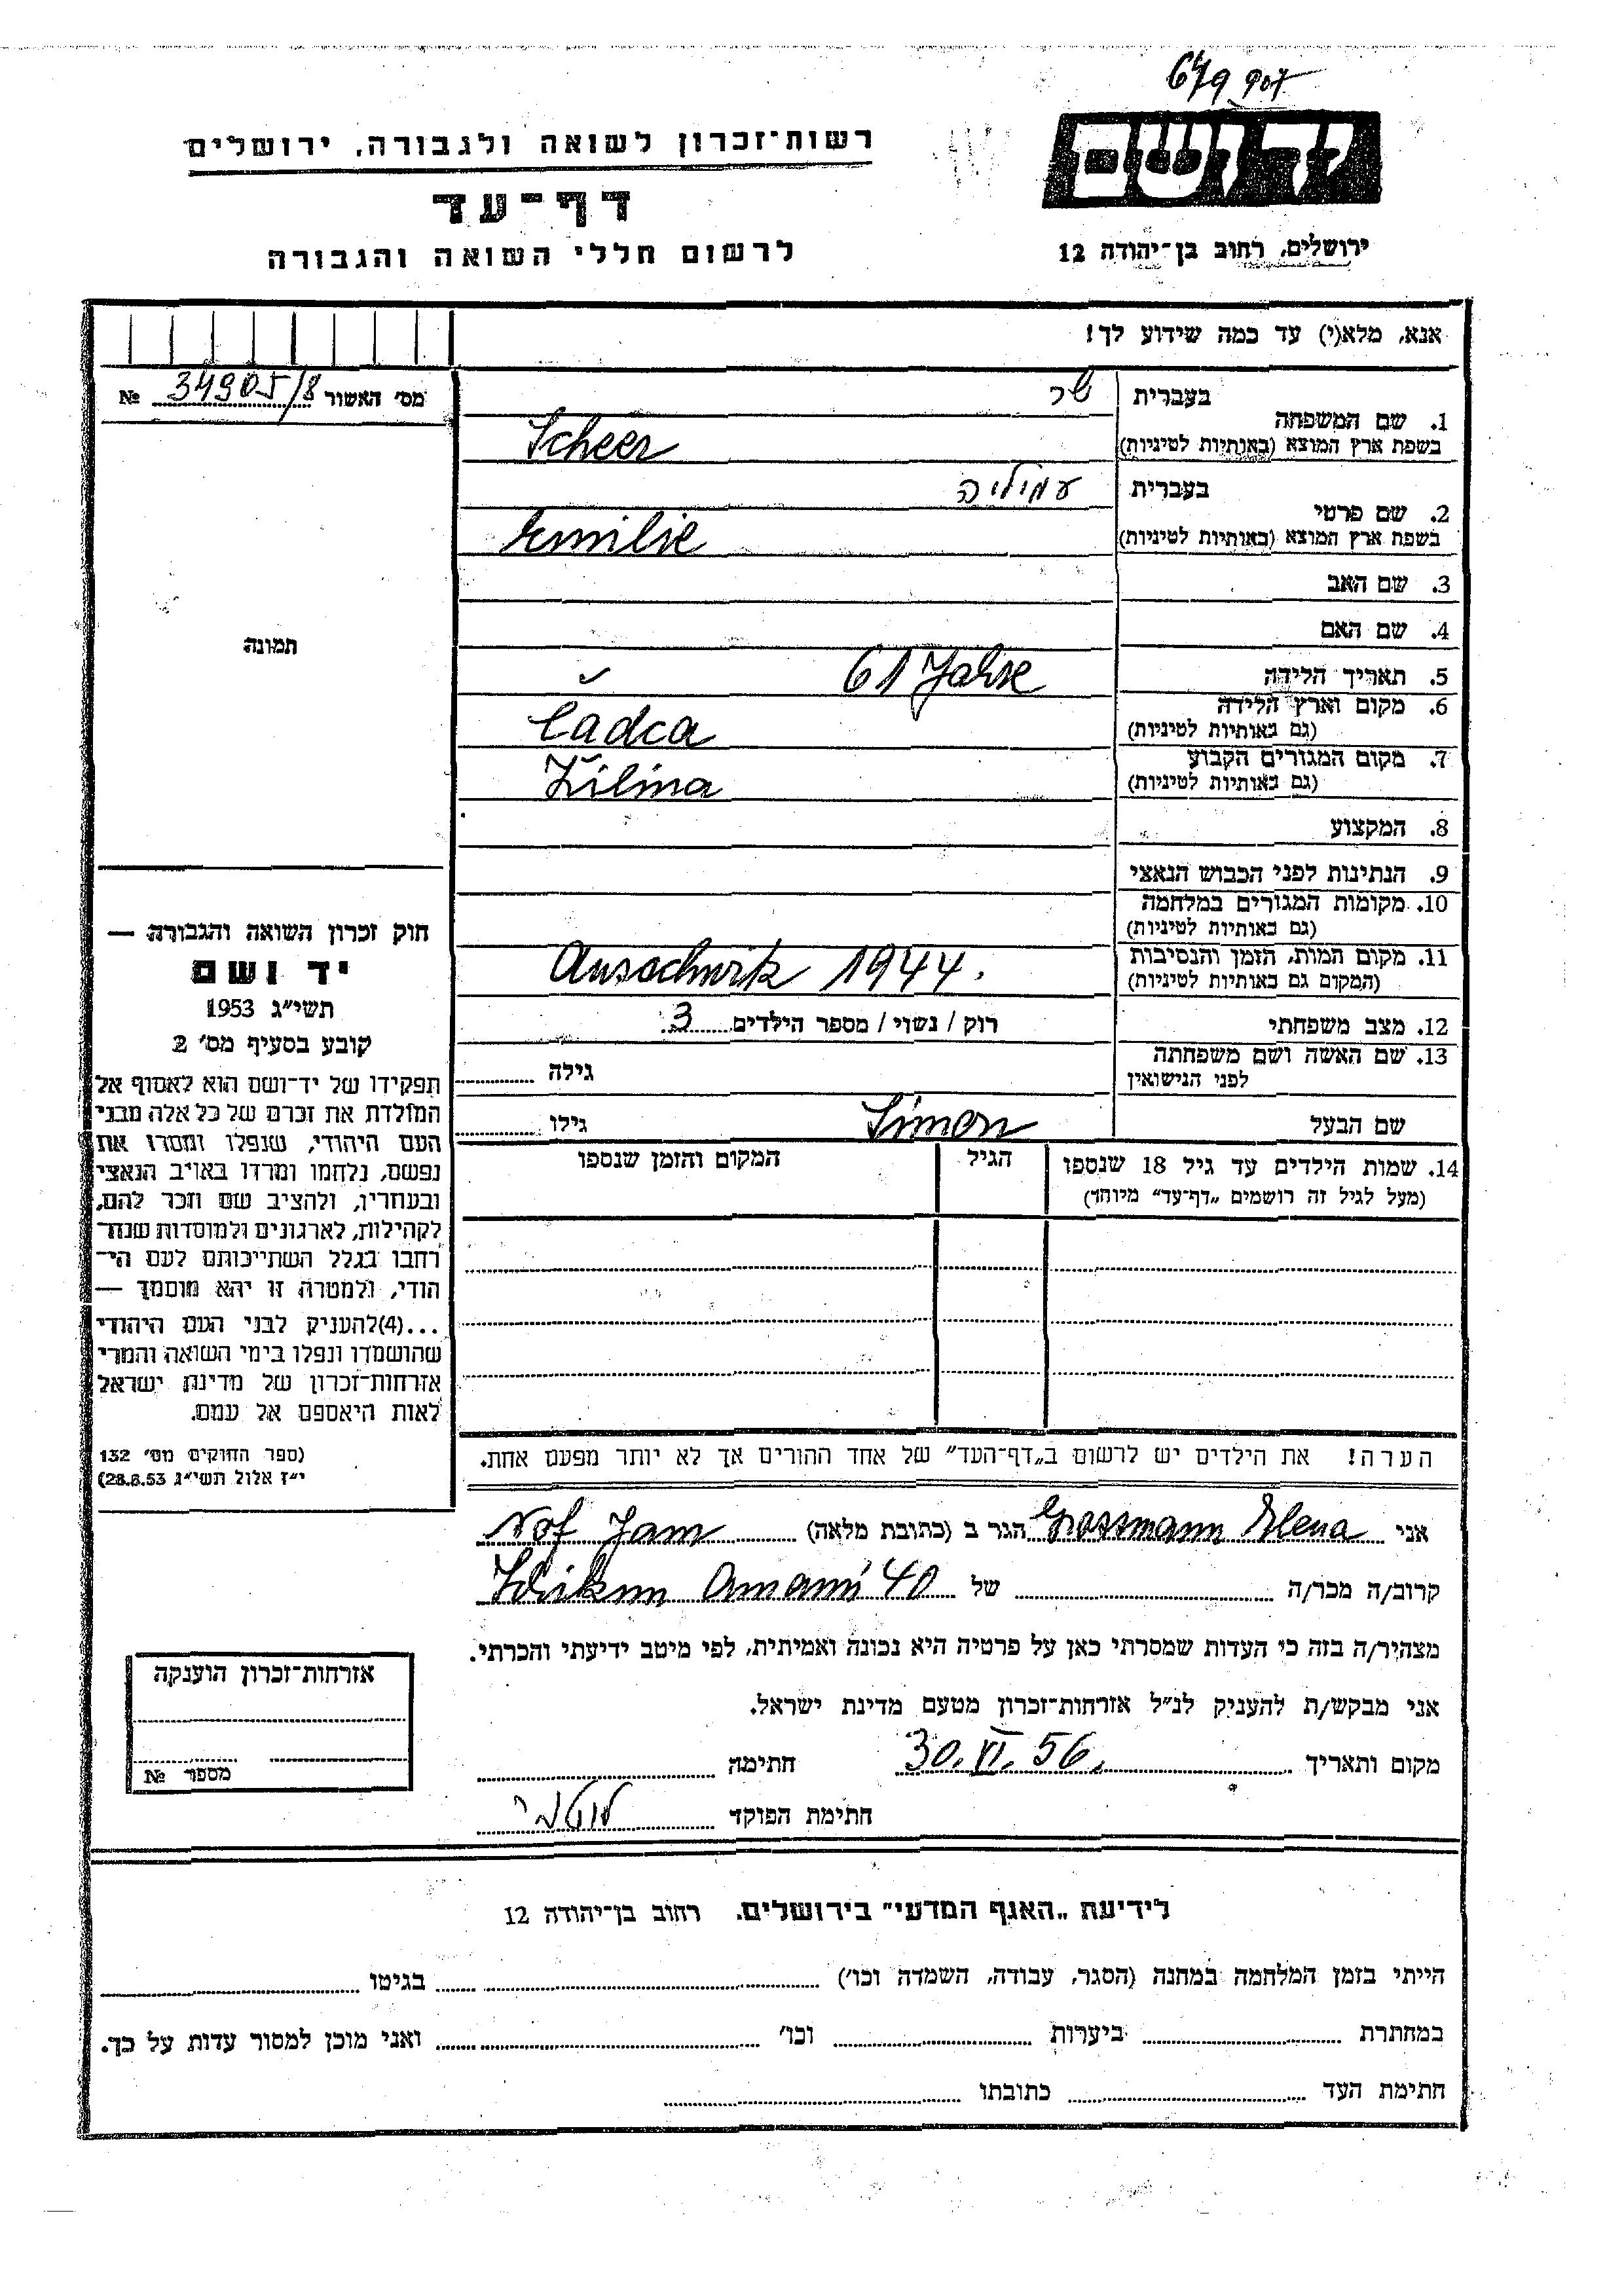 679 907
רשות־זכרון לשואה ולגבורה, ירושלים
יד ושם
דף־עד
לרשום חללי השואה והגבורה
ירושלים, רחוב בן־יהודה 12
אנא, מלא(י) עד כמה שידוע לך!
מס׳ האשור 34905/8 №
1. שם המשפחה
בעברית שר
בשפת ארץ המוצא (באותיות לטיניות) Scheer
2. שם פרטי
בעברית עמיליה
בשפת ארץ המוצא (באותיות לטיניות) Emilie
3. שם האב
4. שם האם
5. תאריך הלידה 61 Jahre
6. מקום וארץ הלידה
(גם באותיות לטיניות) Čadca
7. מקום המגורים הקבוע
(גם באותיות לטיניות) Žilina
8. המקצוע
9. הנתינות לפני הכבוש הנאצי
10. מקומות המגורים במלחמה
(גם באותיות לטיניות)
11. מקום המות, הזמן והנסיבות
(המקום גם באותיות לטיניות) Ausschwitz 1944.
12. מצב משפחתי רוק / נשוי / מספר הילדים 3
13. שם האשה ושם משפחתה
לפני הנישואין גילה
שם הבעל Simon גילו
14. שמות הילדים עד גיל 18 שנספו הגיל המקום והזמן שנספו
(מעל לגיל זה רושמים „דף־עד״ מיוחד)
הערה! את הילדים יש לרשום ב„דף־העד״ של אחד ההורים אך לא יותר מפעם אחת.
תמונה
חוק זכרון השואה והגבורה —
יד ושם
תשי״ג 1953
קובע בסעיף מס׳ 2
תפקידו של יד־ושם הוא לאסוף אל
המולדת את זכרם של כל אלה מבני
העם היהודי, שנפלו ומסרו את
נפשם, נלחמו ומרדו באויב הנאצי
ובעוזריו, ולהציב שם וזכר להם,
לקהילות, לארגונים ולמוסדות שנח־
רחבו בגלל השתייכותם לעם הי־
הודי, ולמטרה זו יהא מוסמך —
...(4)להעניק לבני העם היהודי
שהושמדו ונפלו בימי השואה והמרי
אזרחות־זכרון של מדינת ישראל
לאות היאספם אל עמם.
(ספר החוקים מס׳ 132
י״ז אלול תשי״ג 28.8.53)
אני Grossmann Elena הגר ב (כתובת מלאה) Nof Jam
קרוב/ה מכר/ה של Schikun Amami 40
מצהיר/ה בזה כי העדות שמסרתי כאן על פרטיה היא נכונה ואמיתית, לפי מיטב ידיעתי והכרתי.
אני מבקש/ת להעניק לנ״ל אזרחות־זכרון מטעם מדינת ישראל.
מקום ותאריך 30. VI. 56. חתימה
חתימת הפוקד
אזרחות־זכרון הוענקה
מספר №
לידיעת „האגף המדעי״ בירושלים. רחוב בן־יהודה 12
הייתי בזמן המלחמה במחנה (הסגר, עבודה, השמדה וכו׳) בגיטו
במחתרת ביערות וכו׳ ואני מוכן למסור עדות על כך.
חתימת העד כתובתו